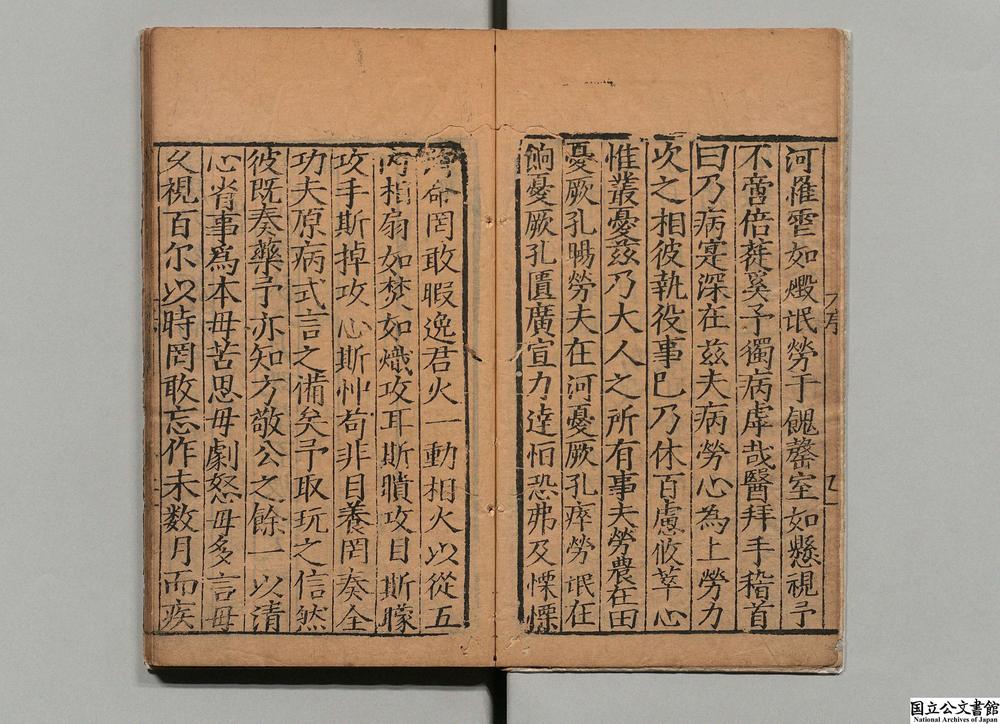 河罹霅如燬氓勞于餽罄室如懸視予
不啻倍蓰奚予獨病虖哉醫拜手稽首
曰乃病寔深在茲夫病勞心為上勞力
次之相彼執役事已乃休百慮攸萃心
惟叢憂茲乃大人之所有事夫勞農在田
憂厥孔暘勞夫在河憂厥孔瘁勞氓在
餉憂厥孔匱廣宣力逹怕恐弗及慄慄
命罔敢暇逸君火一動相火以從五
內相扇如焚如熾攻耳斯聵攻目斯矇
攻手斯掉攻心斯忡苟非目養罔奏全
功夫原病式言之備矣予取玩之信然
彼既奏藥予亦知方敬公之餘一以清
心省事為本毋苦思毋劇怒毋多言毋
久視百尔以時罔敢忘作未数月而疾
序
国立公文書館
National Archives of Japan